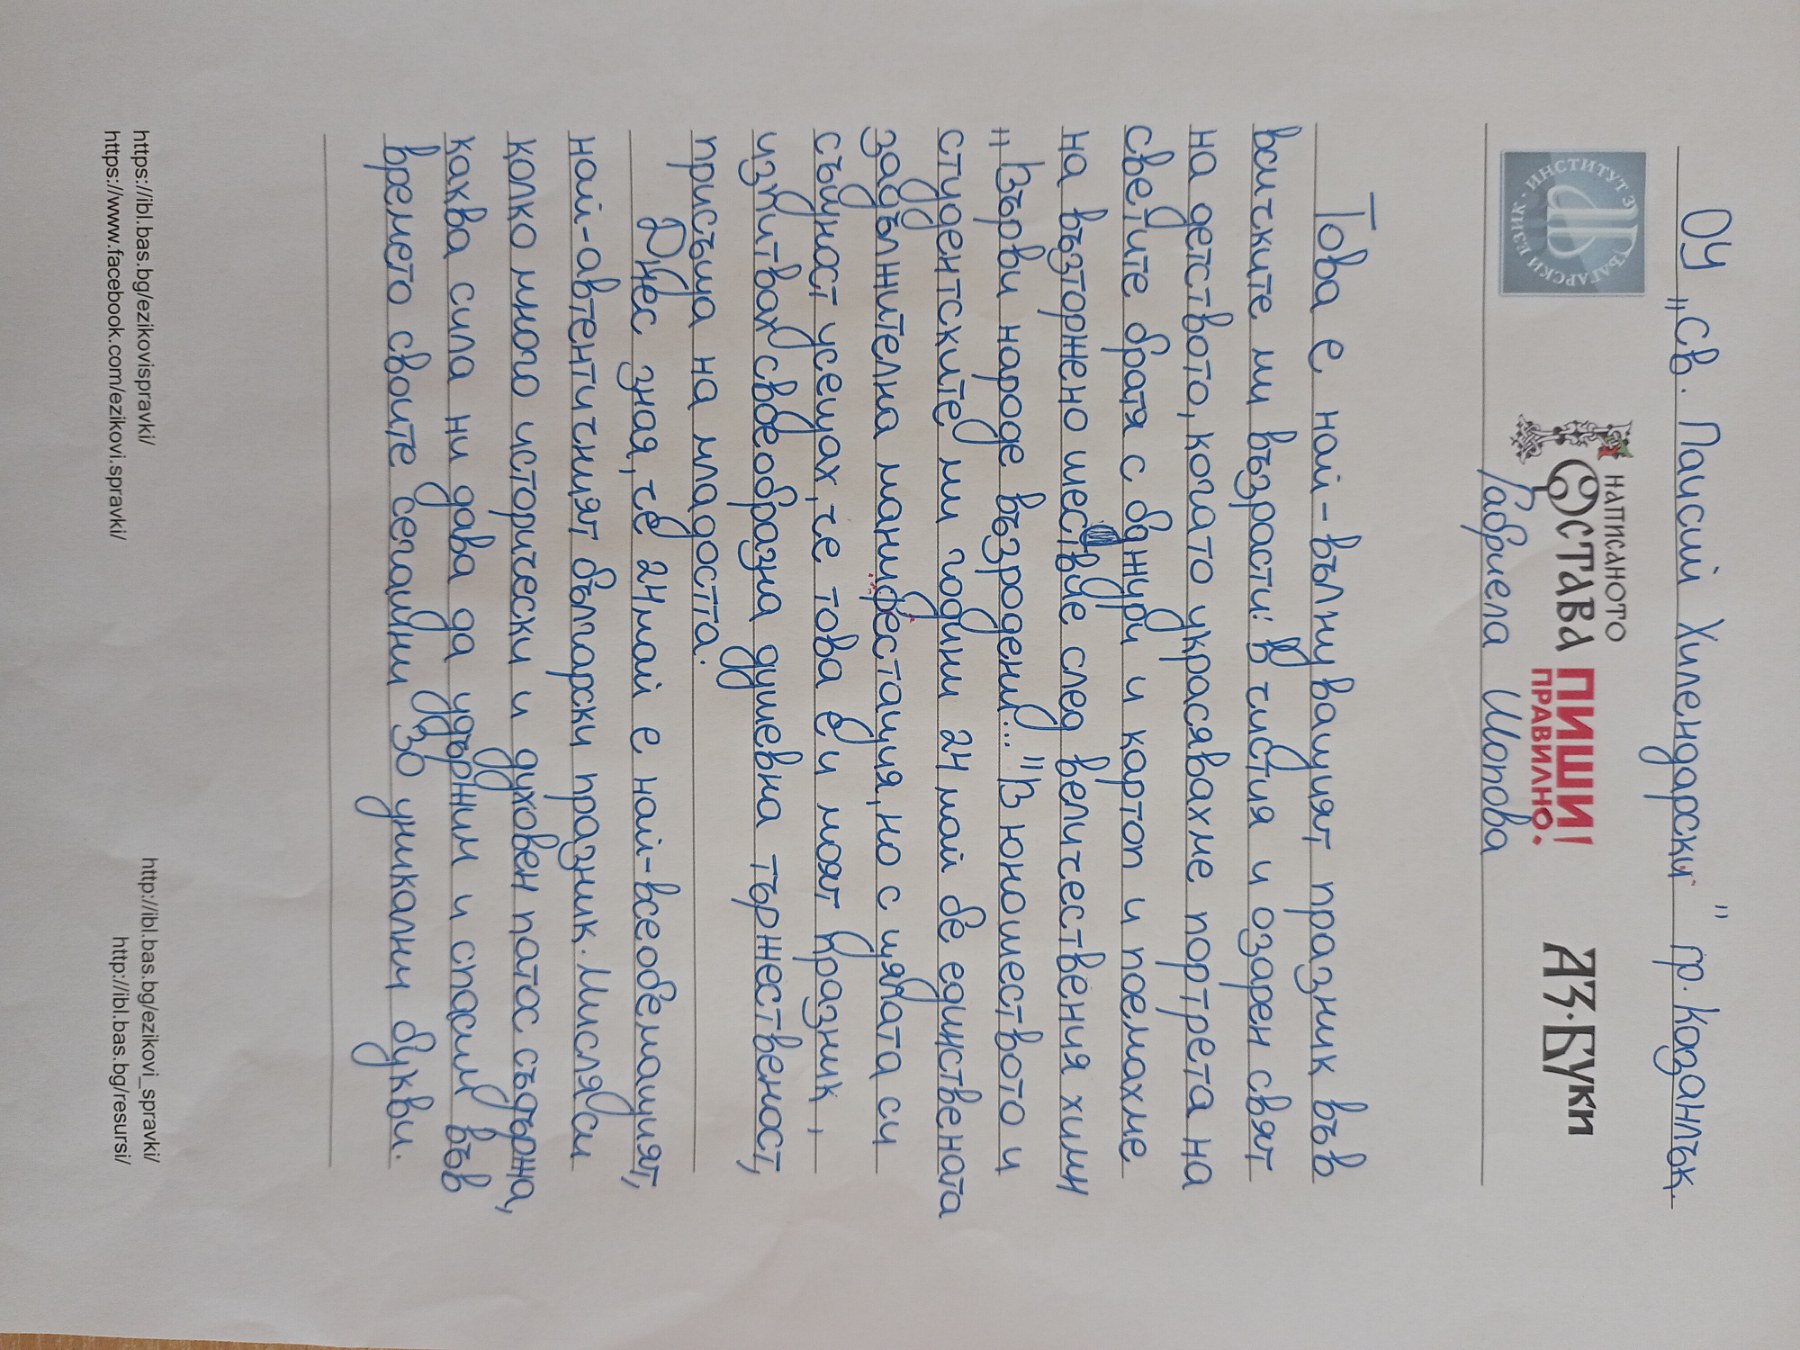 ОУ „Св. Паисий Хилендарски" гр. Казанлък
ИНСТИТУТ ЗА БЪЛГАРСКИ ЕЗИК
НАПИСАНОТО
ОСТАВА
ПИШИ
ПРАВИЛНО!
АЗ·БУКИ
Габриела Шопова
Това е най-вълнуващият празник във
всичките ми възрасти: в чистия и озарен свят
на детството, когато украсявахме портрета на
светите братя с божури и картоп и поемахме
на възторжено шествие след величествения химн
„Върви народе възродени..." В юношеството и
студентските ми години 24 май бе единствената
задължителна манифестация, но с цялата си
същност усещах, че това е и моят празник,
изживявах своеобразна душевна тържественост,
присъща на младостта.
Днес зная, че 24 май е най-всеобемащият,
най-автентичният български празник. Мисля си
колко много исторически и духовен патос съдържа,
каква сила ни дава да удържим и спасим във
времето своите сегашни 30 уникални букви.
https://ibl.bas.bg/ezikovispravki/
https://www.facebook.com/ezikovi.spravki/
http://ibl.bas.bg/ezikovi_spravki/
http://ibl.bas.bg/resursi/